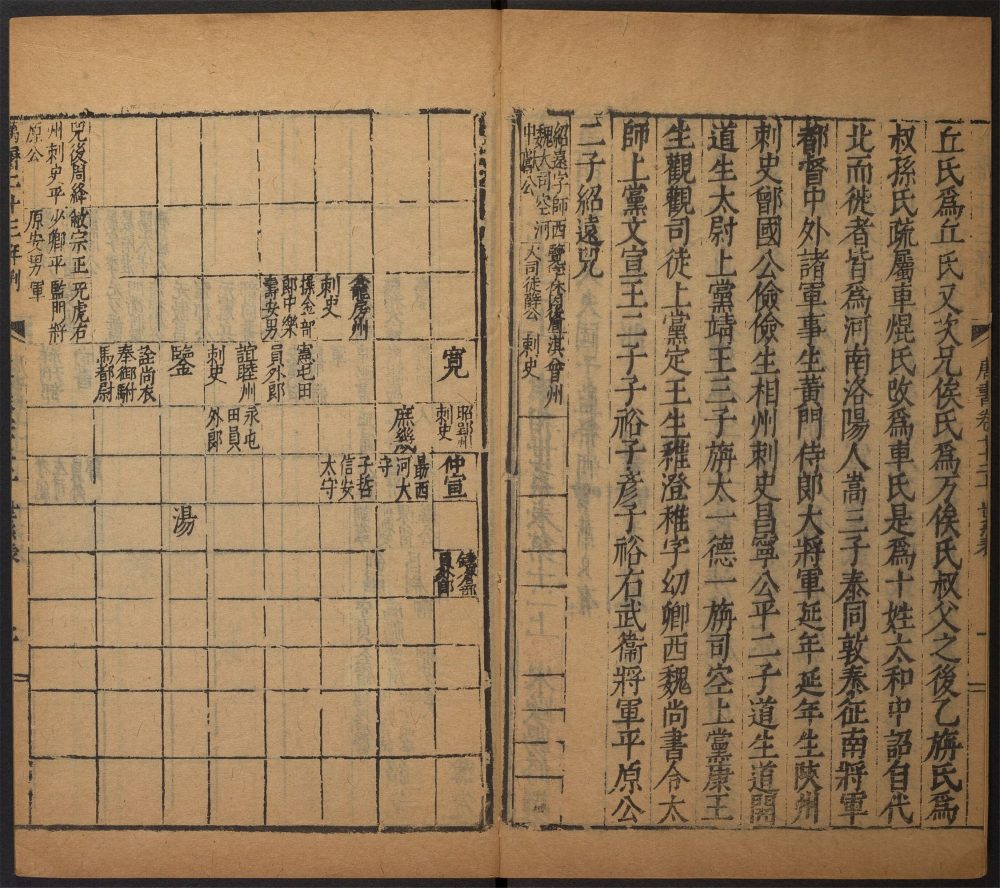 丘氏爲丘氏又次兄俟氏爲万俟氏叔父之後乙旃氏爲
叔孫氏疏屬車焜氏改爲車氏是爲十姓太和中詔自代
北而徙者皆爲河南洛陽人嵩三子泰同敦泰征南將軍
都督中外諸軍事生黄門侍郎大將軍延年延年生陝州
刺史鄫國公儉儉生相州刺史昌寧公平二子道生道開
道生太尉上黨靖王三子旃太一德一旃司空上黨康王
生觀觀司徒上黨定王生稚澄稚字幼卿西魏尚書令太
師上黨文宣王二子子裕子彥子裕右武衞將軍平原公
二子紹遠兕
紹遠字師
魏太司空河
中獻公
西
大司徒薛公
覽字休因後周
淇曾州
刺史
龕房州
刺史
操金部
郎中樂
壽安男
寛
憲屯田
員外郎
誼睦州
刺史
鑒
詮尚衣
奉御駙
馬都尉
昭鄀州
刺史
庶幾
永屯
田員
外郎
仲宣
最西
河太
守
子哲
信安
太守
湯
鏄倉部
員外郎
兕後周絳
州刺史平
原公
敏宗正
少卿平
原安男
旡虎右
監門將
軍
萬曆二十三年刊
唐書卷七十二上 世系表